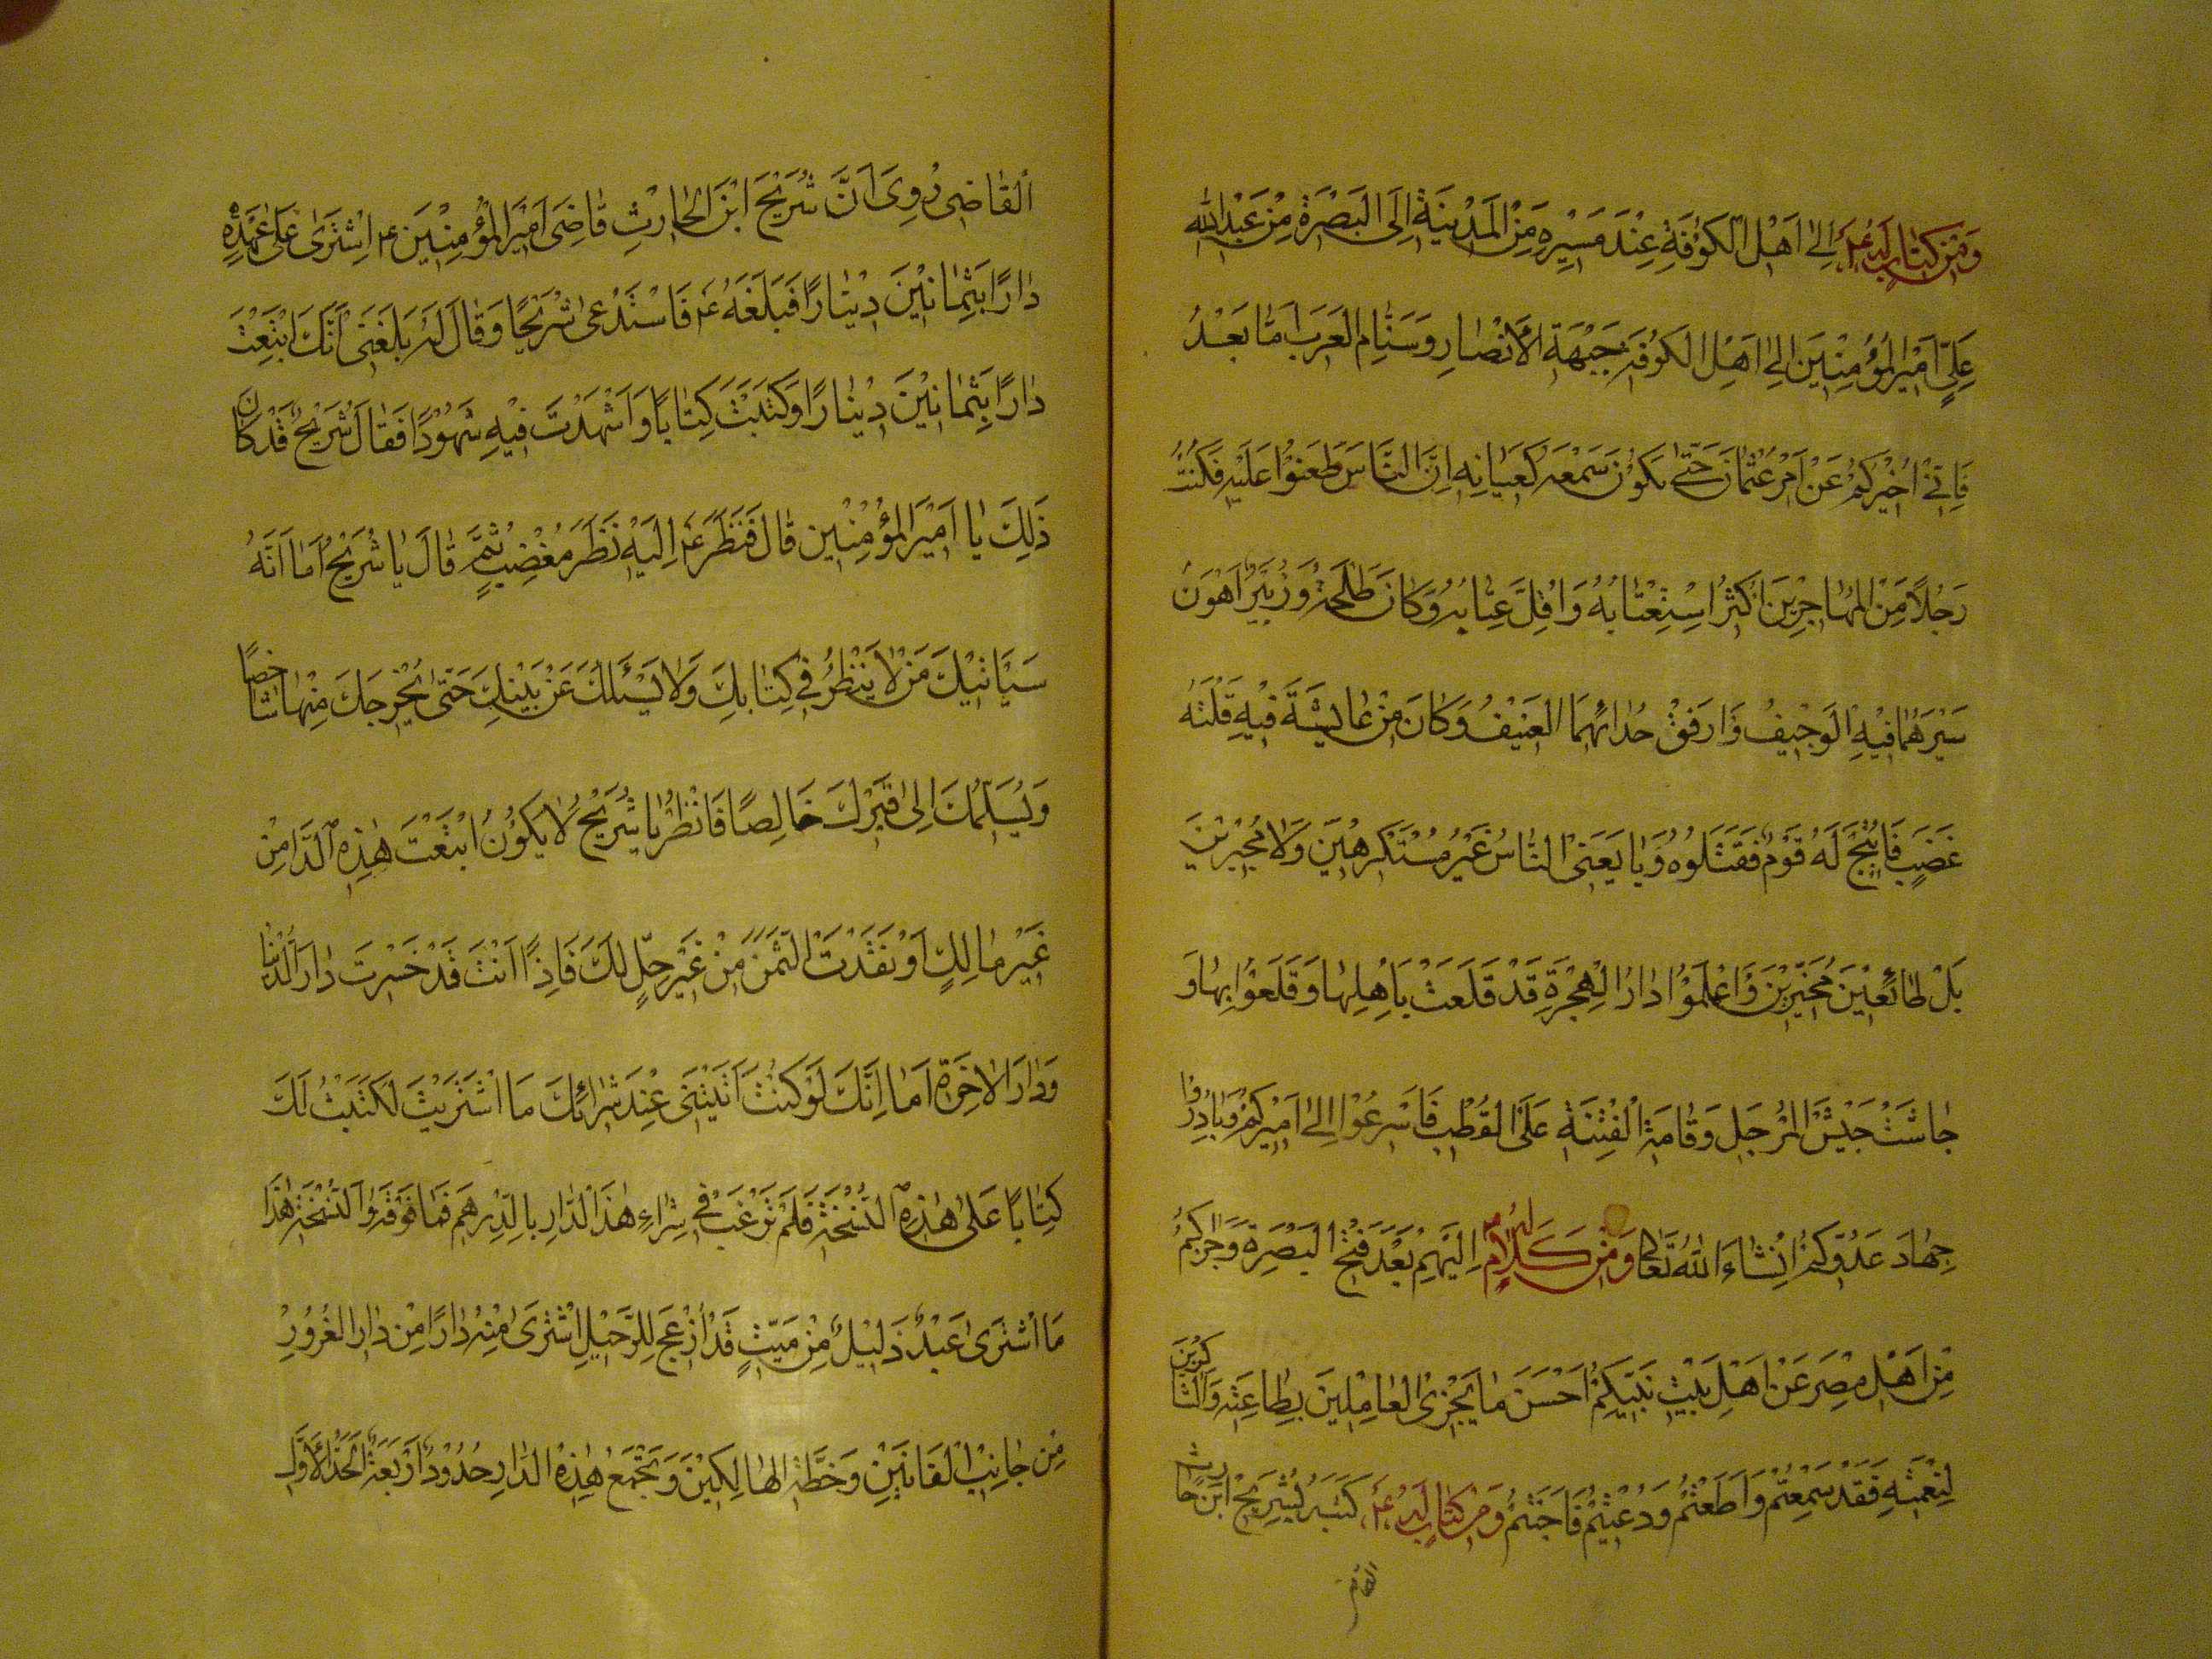 وَمِنْ كِتَابٍ لَهُ ع اِلىٰ اَهْلِ الْكُوْفَةِ عِنْدَ مَسِيْرِهِ مِنَ الْمَدِيْنَةِ اِلَى الْبَصْرَةِ مِنْ عَبْدِ اللّٰهِ
عَلِيٍّ اَمِيْرِ الْمُؤْمِنِيْنَ اِلىٰ اَهْلِ الْكُوْفَةِ جَبْهَةِ الْاَنْصَارِ وَسَنَامِ الْعَرَبِ اَمَّا بَعْدُ
فَاِنِّيْ اُخْبِرُكُمْ عَنْ اَمْرِ عُثْمَانَ حَتّٰى يَكُوْنَ سَمْعُهُ كَعِيَانِهِ اِنَّ النَّاسَ طَعَنُوْا عَلَيْهِ فَكُنْتُ
رَجُلًا مِنَ الْمُهَاجِرِيْنَ اُكْثِرُ اسْتِعْتَابَهُ وَاُقِلُّ عِتَابَهُ وَكَانَ طَلْحَةُ وَزُبَيْرُ اَهْوَنُ
سَيْرِهِمَا فِيْهِ الْوَجِيْفُ وَارْفَقُ حِدَائِهِمَا الْعَنِيْفُ وَكَانَ مِنْ عَائِشَةَ فِيْهِ فَلْتَةُ
غَضَبٍ فَاُتِيْحَ لَهُ قَوْمٌ فَقَتَلُوْهُ وَبَايَعَنِى النَّاسُ غَيْرَ مُسْتَكْرَهِيْنَ وَلَا مُجْبَرِيْنَ
بَلْ طَائِعِيْنَ مُخَيَّرِيْنَ وَاعْلَمُوْا دَارَ الْهِجْرَةِ قَدْ قَلَعَتْ بِاَهْلِهَا وَقَلَعُوْا بِهَا وَ
جَاشَتْ جَيْشَ الْمِرْجَلِ وَقَامَةِ الْفِتْنَةُ عَلَى الْقُطْبِ فَاَسْرِعُوْا اِلىٰ اَمِيْرِكُمْ وَبَادِرُوا
جِهَادَ عَدُوِّكُمْ اِنْشَاءَ اللّٰهُ تَعَالىٰ وَمِنْ كَلَامٍ لَهُ ع اِلَيْهِمْ بَعْدَ فَتْحِ الْبَصْرَةِ وَجَزَاكُمُ
مِنْ اَهْلِ مِصْرٍ عَنْ اَهْلِ بَيْتِ نَبِيِّكُمْ اَحْسَنَ مَا يَجْزِى الْعَامِلِيْنَ بِطَاعَتِهِ وَالشَّاكِرِيْنَ
لِنِعْمَتِهِ فَقَدْ سَمِعْتُمْ وَاَطَعْتُمْ وَدُعِيْتُمْ فَاَجَبْتُمْ وَمِنْ كِتَابٍ لَهُ ع كَتَبَهُ لِشُرَيْحِ ابْنِ حَارِثِ
القاضى
اَلْقَاضِى رُوِىَ اَنَّ شُرَيْحَ ابْنَ الْحَارِثِ قَاضِىَ اَمِيْرِ الْمُؤْمِنِيْنَ ع اِشْتَرىٰ عَلىٰ عَهْدِهِ
دَارًا بِثَمَانِيْنَ دِيْنَارًا فَبَلَغَهُ ع فَاسْتَدْعىٰ شُرَيْحًا وَقَالَ لَهُ بَلَغَنِى اَنَّكَ ابْتَعْتَ
دَارًا بِثَمَانِيْنَ دِيْنَارًا وَكَتَبْتَ كِتَابًا وَاَشْهَدْتَ فِيْهِ شُهُوْدًا فَقَالَ شُرَيْحٌ قَدْ كَانَ
ذٰلِكَ يَا اَمِيْرَ الْمُؤْمِنِيْنَ قَالَ فَنَظَرَ ع اِلَيْهِ نَظَرَ مُغْضِبٍ ثُمَّ قَالَ يَا شُرَيْحُ اَمَا اَنَّهُ
سَيَاْتِيْكَ مَنْ لَا يَنْظُرُ فِىْ كِتَابِكَ وَلَا يَسْئَلُكَ عَنْ بَيِّنَتِكَ حَتّٰى يُخْرِجَكَ مِنْهَا شَاخِصًا
وَيُسَلِّمَكَ اِلىٰ قَبْرِكَ خَالِصًا فَانْظُرْ يَا شُرَيْحُ لَا يَكُوْنُ ابْتَعْتَ هٰذِهِ الدَّارَ مِنْ
غَيْرِ مَالِكٍ اَوْ نَقَدْتَ الثَّمَنَ مِنْ غَيْرِ حِلٍّ لَكَ فَاِذًا اَنْتَ قَدْ خَسِرْتَ دَارَ الدُّنْيَا
وَدَارَ الْاٰخِرَةِ اَمَا اِنَّكَ لَوْ كُنْتَ اَتَيْتَنِى عِنْدَ شِرَائِكَ مَا اشْتَرَيْتَ لَكَتَبْتُ لَكَ
كِتَابًا عَلىٰ هٰذِهِ النُّسْخَةِ فَلَمْ تَرْغَبْ فِىْ شِرَاءِ هٰذَ الدَّارِ بِالدِّرْهَمِ فَمَا فَوْقَهُ وَالنُّسْخَةُ هٰذَا
مَا اشْتَرىٰ عَبْدٌ ذَلِيْلٌ مِنْ مَيِّتٍ قَدْ اُزْعِجَ لِلرَّحِيْلِ اشْتَرىٰ مِنْهُ دَارًا مِنْ دَارِ الْغُرُوْرِ
مِنْ جَانِبِ الْفَانِيْنَ وَخِطَّةِ الْهَالِكِيْنَ وَتَجْمَعُ هٰذِهِ الدَّارَ حُدُوْدٌ اَرْبَعَةٌ اَلْحَدُّ الْاَوَّلُ